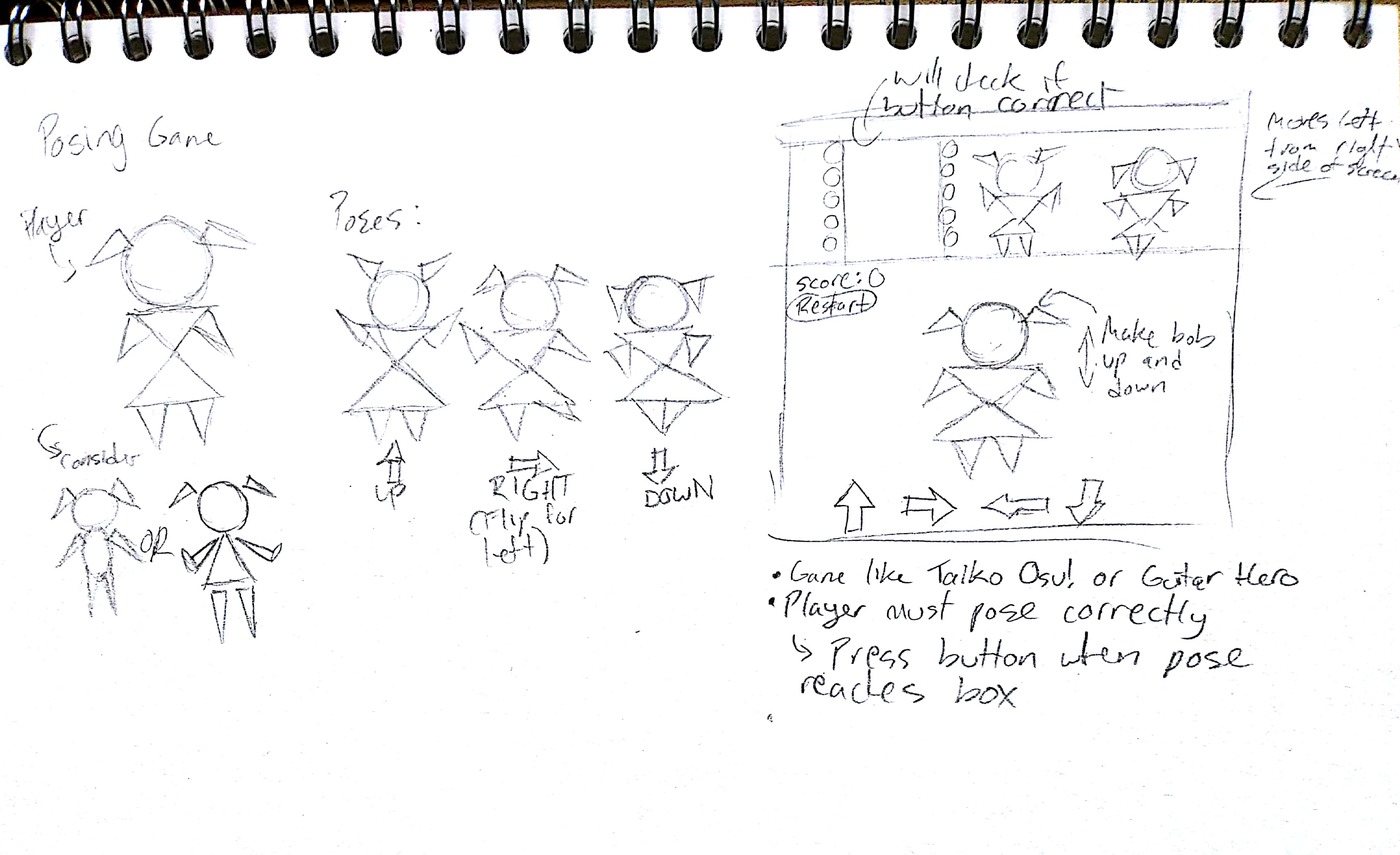 Posing Game
Player
Poses:
consider
OR
UP
RIGHT
(Flip for
left)
DOWN
will check if
button correct
Moves left
from right
side of screen
score: 0
Restart
Make bob
up and
down
• Game like Taiko Osu! or Guitar Hero
• Player must pose correctly
↳ Press button when pose
reaches box